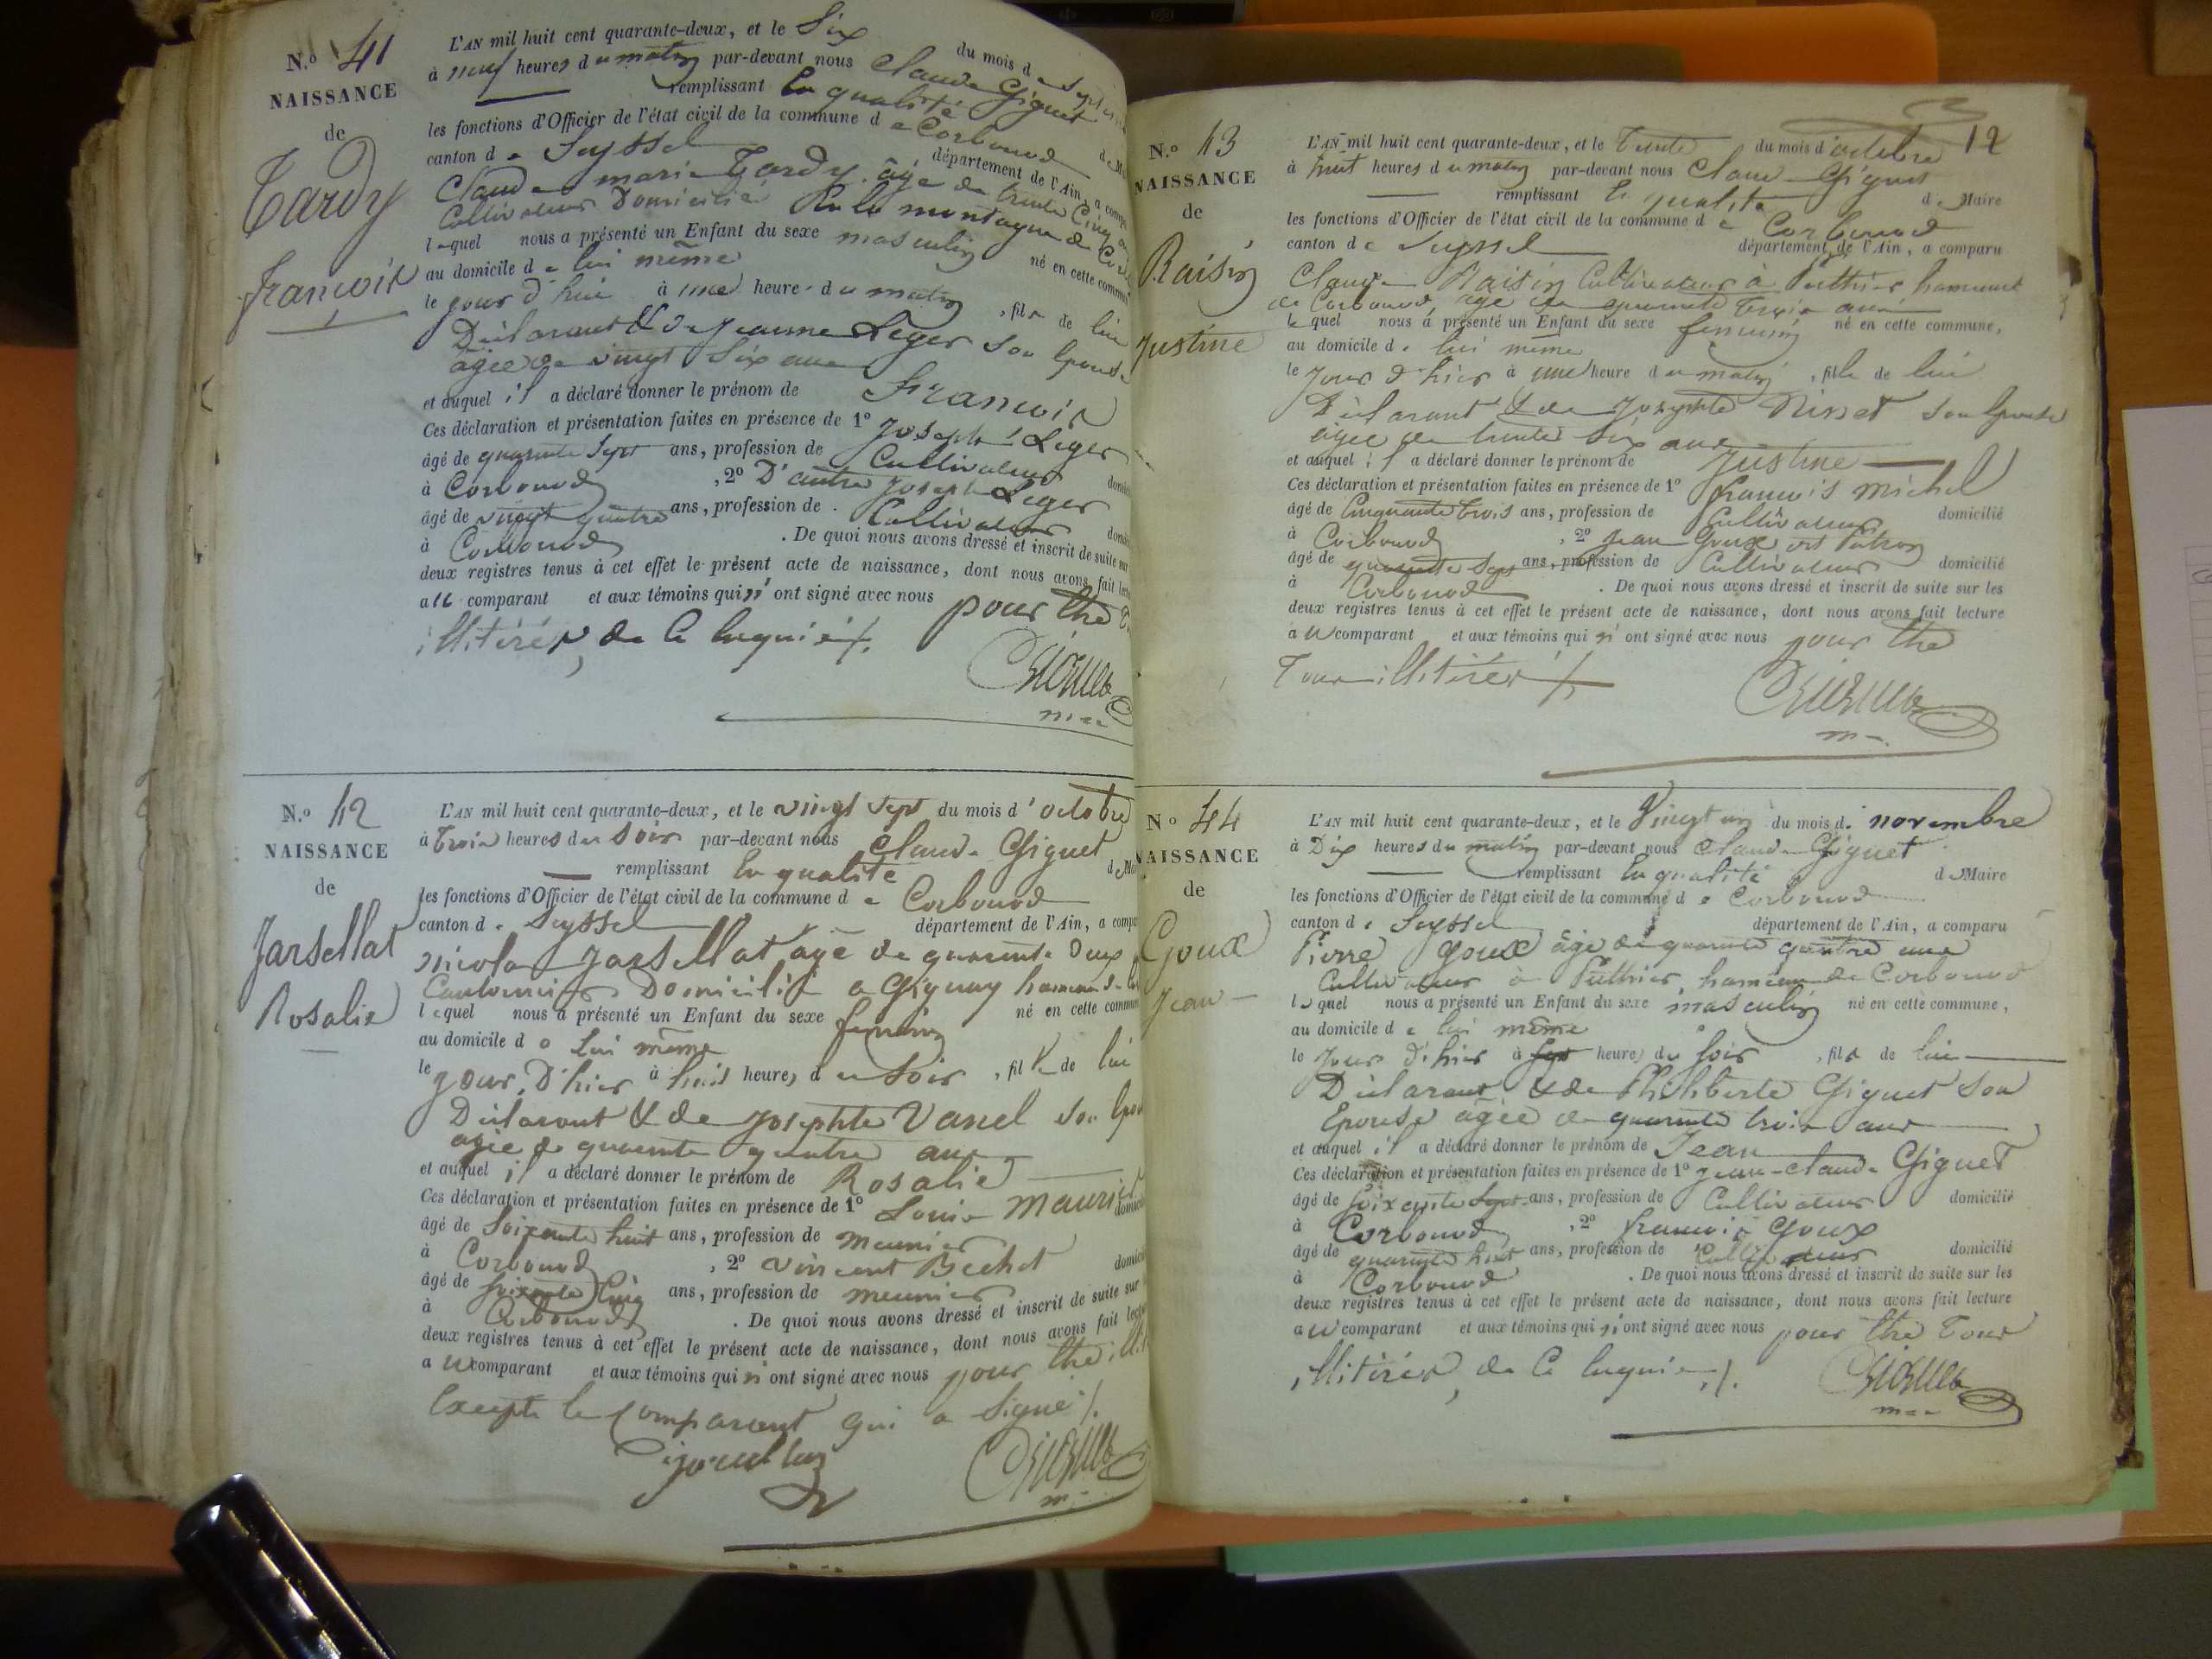 N.o 41
NAISSANCE
de
Tardy
françois
L'AN mil huit cent quarante-deux, et le Six du mois de Septem
à neuf heures du matin par-devant nous Claude Giguet
remplissant En qualité de M
les fonctions d'Officier de l'état civil de la commune de Corbonod
canton de Seyssel département de l'Ain, a compa
Claude marie Tardy, âgé de trente Cinq
Cultivateur Domicilié montagne de
lequel nous a présenté un Enfant du sexe masculin né en cette commu
au domicile de lui même
le jour d'hui à une heure du matin, fils de lui
Déclarant & de jeanne Leger son Epouse
âgée de vingt Six ans
et auquel il a déclaré donner le prénom de françois
Ces déclaration et présentation faites en présence de 1o joseph Leger
âgé de quarante Sept ans, profession de Cultivateur domici
à Corbonod, 2o D'autre joseph Leger
âgé de vingt quatre ans, profession de Cultivateur domici
à Corbonod. De quoi nous avons dressé et inscrit de suite sur
deux registres tenus à cet effet le présent acte de naissance, dont nous avons fait lectu
au comparant et aux témoins qui n' ont signé avec nous pour être
illitérés, de ce Enquis
Giguet
N.o 42
NAISSANCE
de
Jarsellat
Rosalie
L'AN mil huit cent quarante-deux, et le vingt sept du mois d'octobre
à Trois heures du soir par-devant nous Claude Giguet
remplissant En qualité de M
les fonctions d'Officier de l'état civil de la commune de Corbonod
canton de Seyssel département de l'Ain, a compa
nicolas jarsellat âgé de quarante deux
Cantonnier Domicilié a Gignay hameau de
lequel nous a présenté un Enfant du sexe feminin né en cette commun
au domicile de lui même
le jour D'hier à huit heures du Soir, fille de lui
Déclarant & de josephte Vanel son Epou
agée de quarante quatre ans
et auquel il a déclaré donner le prénom de Rosalie
Ces déclaration et présentation faites en présence de 1o Louis Mauri
âgé de soixante huit ans, profession de Meunier domici
à Corbonod, 2o vincent Bechet
âgé de soixante Cinq ans, profession de meunier domici
à Corbonod. De quoi nous avons dressé et inscrit de suite sur
deux registres tenus à cet effet le présent acte de naissance, dont nous avons fait lectu
au comparant et aux témoins qui n' ont signé avec nous pour être
Excepté le Comparant qui a Signé
Giguet
12
N.o 43
NAISSANCE
de
Raisin
Justine
L'AN mil huit cent quarante-deux, et le Trente du mois d'octobre
à huit heures du matin par-devant nous Claude Giguet
remplissant En qualité de Maire
les fonctions d'Officier de l'état civil de la commune de Corbonod
canton de Seyssel département de l'Ain, a comparu
Claude Raisin Cultivateur à Puthier hameau
de Corbonod, âgé de quarante trois ans
lequel nous a présenté un Enfant du sexe feminin né en cette commune,
au domicile de lui même
le jour d'hier à une heure du matin, fille de lui
Déclarant & de josephte Nisset son Epouse
âgée de trente Six ans
et auquel il a déclaré donner le prénom de Justine
Ces déclaration et présentation faites en présence de 1o françois michel
âgé de Cinquante trois ans, profession de Cultivateur domicilié
à Corbonod, 2o jean Goux
âgé de quarante Sept ans, profession de Cultivateur domicilié
à Corbonod. De quoi nous avons dressé et inscrit de suite sur les
deux registres tenus à cet effet le présent acte de naissance, dont nous avons fait lecture
au comparant et aux témoins qui n' ont signé avec nous pour être
Tous illitérés
Giguet
N.o 44
NAISSANCE
de
Goux
Jean
L'AN mil huit cent quarante-deux, et le Vingt un du mois de novembre
à Dix heures du matin par-devant nous Claude Giguet
remplissant En qualité de Maire
les fonctions d'Officier de l'état civil de la commune de Corbonod
canton de Seyssel département de l'Ain, a comparu
Pierre goux âgé de quarante quatre ans
Cultivateur à Puthier, hameau de Corbonod
lequel nous a présenté un Enfant du sexe masculin né en cette commune,
au domicile de lui même
le jour d'hier à sept heures du soir, fils de lui
Déclarant & de Philiberte Giguet son
Epouse âgée de quarante trois ans
et auquel il a déclaré donner le prénom de Jean
Ces déclaration et présentation faites en présence de 1o jean-claude Giguet
âgé de soixante Sept ans, profession de Cultivateur domicilié
à Corbonod, 2o françois Goux
âgé de quarante huit ans, profession de Cultivateur domicilié
à Corbonod. De quoi nous avons dressé et inscrit de suite sur les
deux registres tenus à cet effet le présent acte de naissance, dont nous avons fait lecture
au comparant et aux témoins qui n' ont signé avec nous pour être Tous
illitérés, de ce Enquis
Giguet